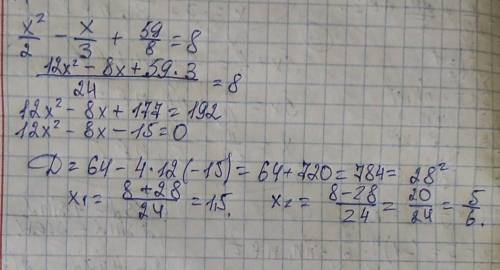 x²/2 - x/3 + 59/8 = 8
(12x² - 8x + 59·3)/24 = 8
12x² - 8x + 177 = 192
12x² - 8x - 15 = 0
D = 64 - 4·12(-15) = 64 + 720 = 784 = 28²
x₁ = (8+28)/24 = 1,5. x₂ = (8-28)/24 = 20/24 = 5/6.